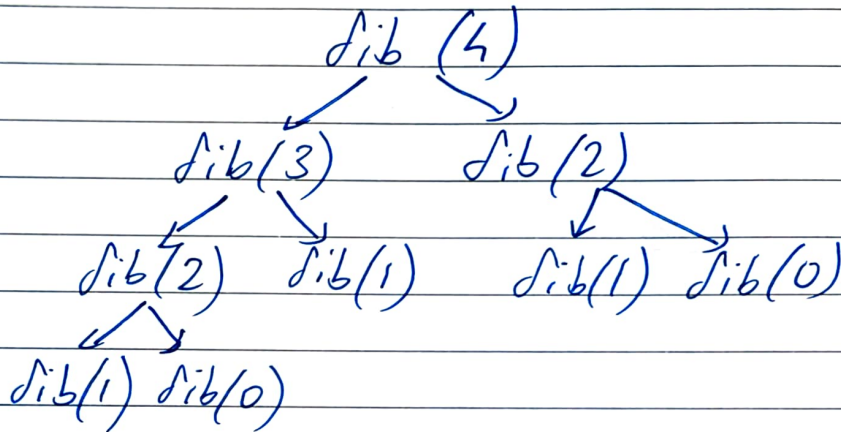 fib (4)
fib(3) fib(2)
fib(2) fib(1) fib(1) fib(0)
fib(1) fib(0)